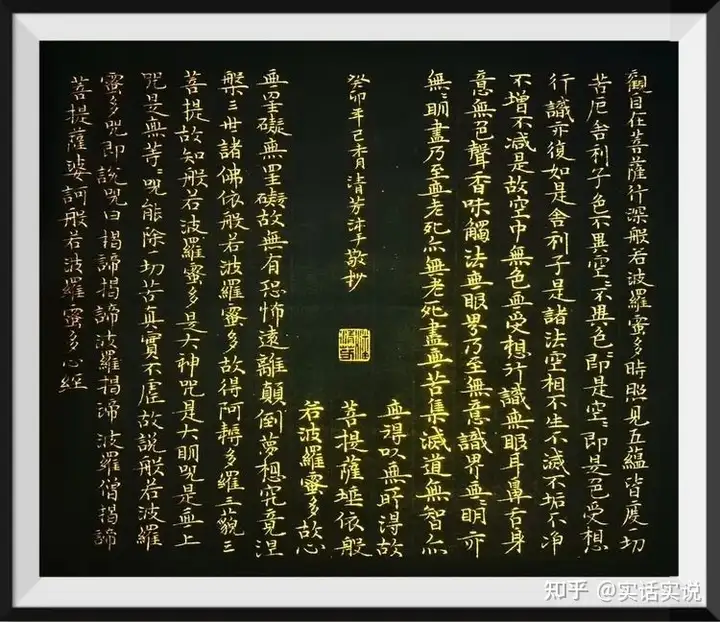 觀自在菩薩行深般若波羅蜜多時照見五蘊皆度切
苦厄舍利子色不異空〻不異色〻即是空〻即是色受想
行識亦復如是舍利子是諸法空相不生不滅不垢不净
不增不減是故空中無色無受想行識無眼耳鼻舌身
意無色聲香味觸法無眼界乃至無意識界無明亦
無〻明盡乃至無老死亦無老死盡無苦集滅道無智亦
無得以無所得故
菩提薩埵依般
若波羅蜜多故心
無罣礙無罣礙故無有恐怖遠離顛倒夢想究竟涅
槃三世諸佛依般若波羅蜜多故得阿耨多羅三藐三
菩提故知般若波羅蜜多是大神咒是大明咒是無上
咒是無等〻咒能除一切苦真實不虛故說般若波羅
蜜多咒即說咒曰揭諦揭諦波羅揭諦波羅僧揭諦
菩提薩婆訶般若波羅蜜多心經
癸卯年己未月清芳沐手敬抄
知乎 @实话实说